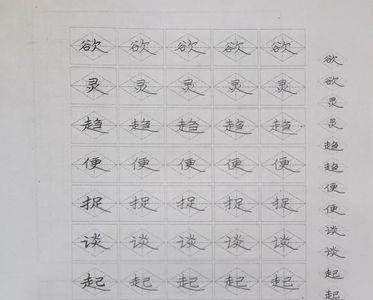 欲欲欲欲欲
灵灵灵灵灵
趋趋趋趋趋
便便便便便
捉捉捉捉捉
谈谈谈谈谈
起起起起起
欲
欲
灵
灵
趋
趋
便
便
谈
谈
起
起